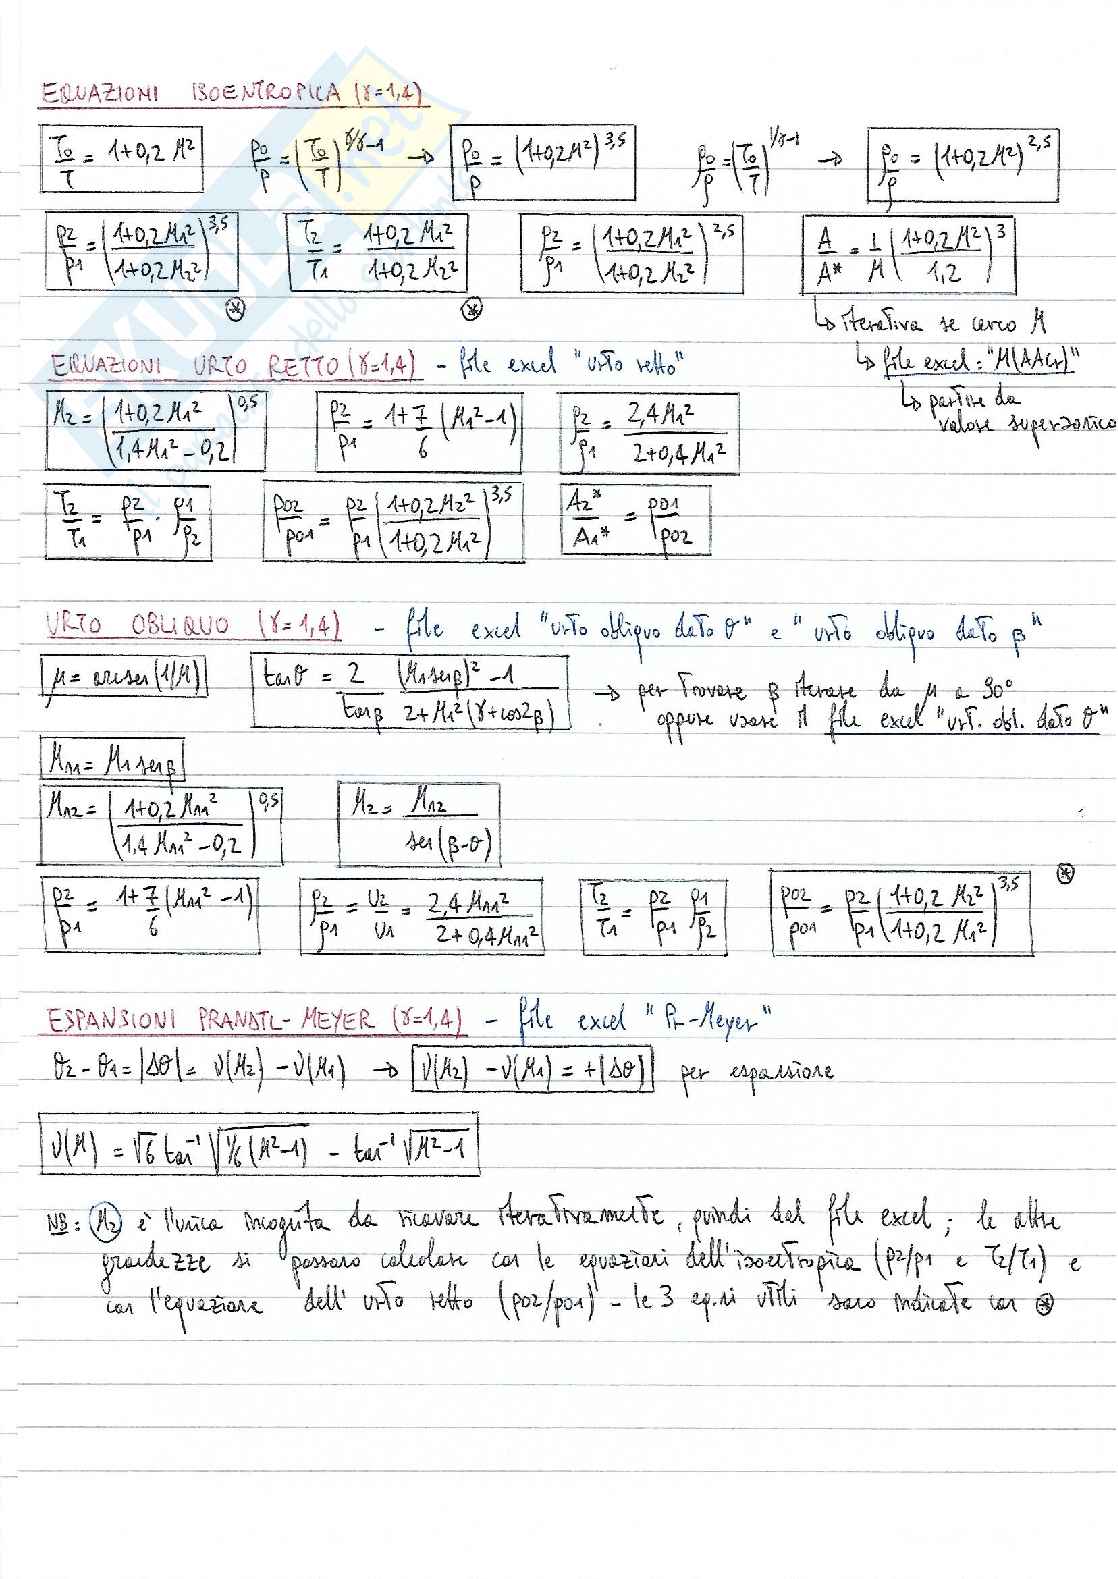 EQUAZIONI ISOENTROPICA (γ=1,4)
T0/T = 1+0,2 M²   p0/p = (T0/T)^γ/γ-1 → p0/p = (1+0,2M²)^3,5   ρ0/ρ = (T0/T)^1/γ-1 → ρ0/ρ = (1+0,2M²)^2,5
p2/p1 = ((1+0,2M1²)/(1+0,2M2²))^3,5   T2/T1 = (1+0,2M1²)/(1+0,2M2²)   ρ2/ρ1 = ((1+0,2M1²)/(1+0,2M2²))^2,5   A/A* = 1/M ((1+0,2M²)/1,2)^3
⊛   ⊛   ↳ iterativa se cerco M
EQUAZIONI URTO RETTO (γ=1,4) - file excel "urto retto"   ↳ file excel: "M(AACr)"
↳ partire da
valore supersonico
M2 = ((1+0,2M1²)/(1,4M1²-0,2))^0,5   p2/p1 = 1+7/6 (M1²-1)   ρ2/ρ1 = 2,4M1²/(2+0,4M1²)
T2/T1 = p2/p1 · ρ1/ρ2   p02/p01 = p2/p1 ((1+0,2M2²)/(1+0,2M1²))^3,5   A2*/A1* = p01/p02
URTO OBLIQUO (γ=1,4) - file excel "urto obliquo dato θ" e "urto obliquo dato β"
μ = arcsen(1/M)   tanθ = 2/tanβ ((M1senβ)²-1)/(2+M1²(γ+cos2β)) → per trovare β iterare da μ a 90°
oppure usare il file excel "urt. obl. dato θ"
Mn1 = M1 senβ
Mn2 = ((1+0,2Mn1²)/(1,4Mn1²-0,2))^0,5   M2 = Mn2/sen(β-θ)
p2/p1 = 1+7/6 (Mn1²-1)   ρ2/ρ1 = U2/U1 = 2,4Mn1²/(2+0,4Mn1²)   T2/T1 = p2/p1 ρ1/ρ2   p02/p01 = p2/p1 ((1+0,2M2²)/(1+0,2M1²))^3,5 ⊛
ESPANSIONI PRANDTL-MEYER (γ=1,4) - file excel "Pr-Meyer"
θ2-θ1=|Δθ|= ν(M2) - ν(M1) → ν(M2) - ν(M1) = +|Δθ| per espansione
ν(M) = √6 tan⁻¹ √(1/6(M²-1)) - tan⁻¹ √(M²-1)
NB: M2 è l'unica incognita da ricavare iterativamente, quindi dal file excel; le altre
grandezze si possono calcolare con le equazioni dell'isoentropica (p2/p1 e T2/T1) e
con l'equazione dell'urto retto (p02/p01) - le 3 eq.ni utili sono indicate con ⊛